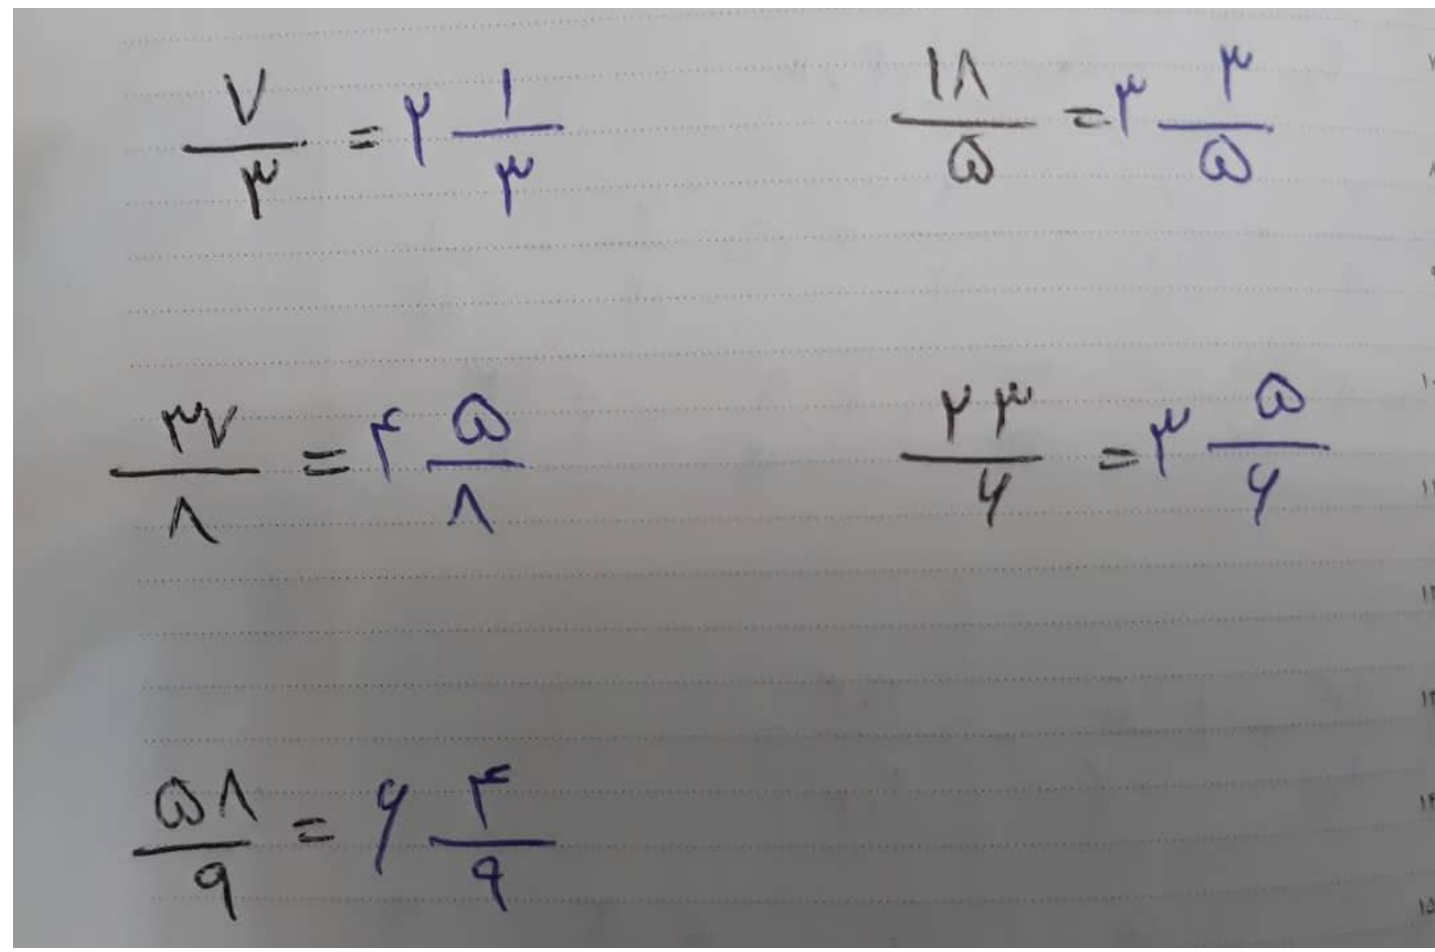 ۷/۳ = ۲ ۱/۳    ۱۸/۵ = ۳ ۳/۵
۳۷/۸ = ۴ ۵/۸    ۲۳/۶ = ۳ ۵/۶
۵۸/۹ = ۶ ۴/۹